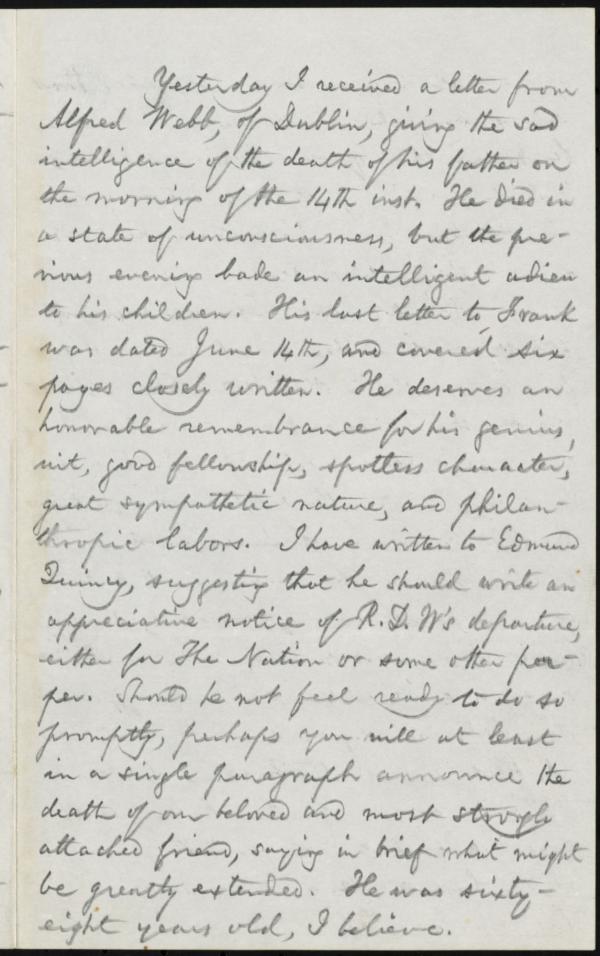 Yesterday I received a letter from
Alfred Webb, of Dublin, giving the sad
intelligence of the death of his father on
the morning of the 14th inst. He died in
a state of unconsciousness, but the pre-
vious evening bade an intelligent adieu
to his children. His last letter to Frank
was dated June 14th, and covered six
pages closely written. He deserves an
honorable remembrance for his genius,
wit, good fellowship, spotless character,
great sympathetic nature, and philan-
thropic labors. I have written to Edmund
Quincy, suggesting that he should write an
appreciative notice of R. D. W's departure,
either for The Nation or some other pa-
per. Should he not feel ready to do so
promptly, perhaps you will at least
in a single paragraph announce the
death of our beloved and most strongly
attached friend, saying in brief what might
be greatly extended. He was sixty-
eight years old, I believe.